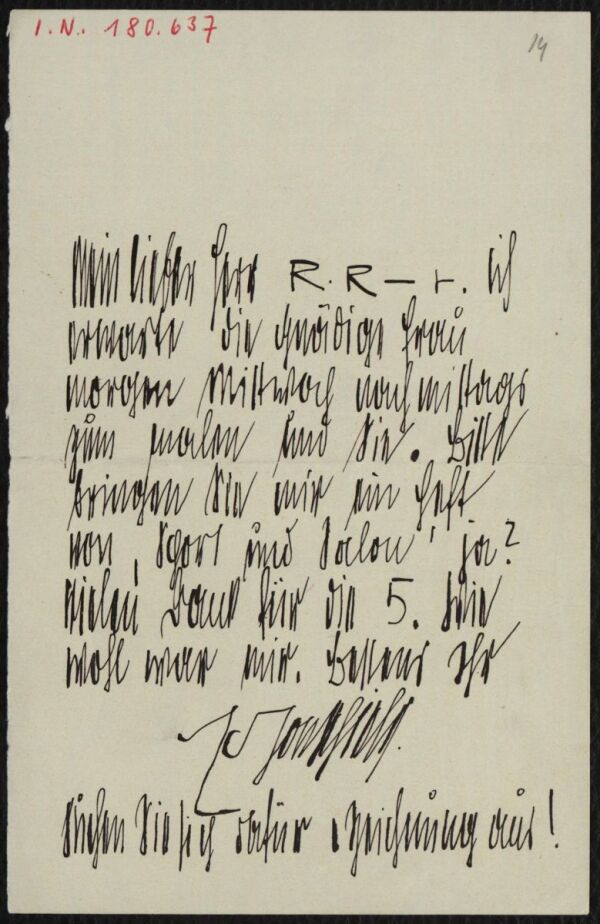 I.N. 180.637
14
Mein lieber Herr R. R – r. ich
erwarte die gnädige Frau
morgen Mittwoch nachmittags
zum malen und Sie. Bitte
bringen Sie mir ein Heft
von „Sport und Salon" ja?
vielen Dank für die 5. Wie
wohl war mir. Bestens Ihr
Suchen Sie sich dafür Zeichnung aus!